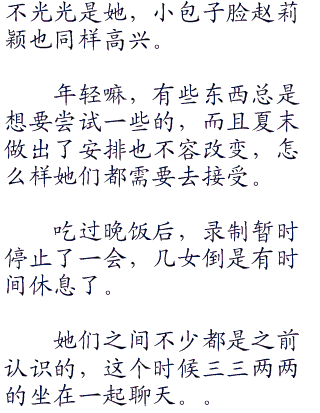 不光光是她，小包子脸赵莉
颖也同样高兴。
年轻嘛，有些东西总是
想要尝试一些的，而且夏末
做出了安排也不容改变，怎
么样她们都需要去接受。
吃过晚饭后，录制暂时
停止了一会，几女倒是有时
间休息了。
她们之间不少都是之前
认识的，这个时候三三两两
的坐在一起聊天。。